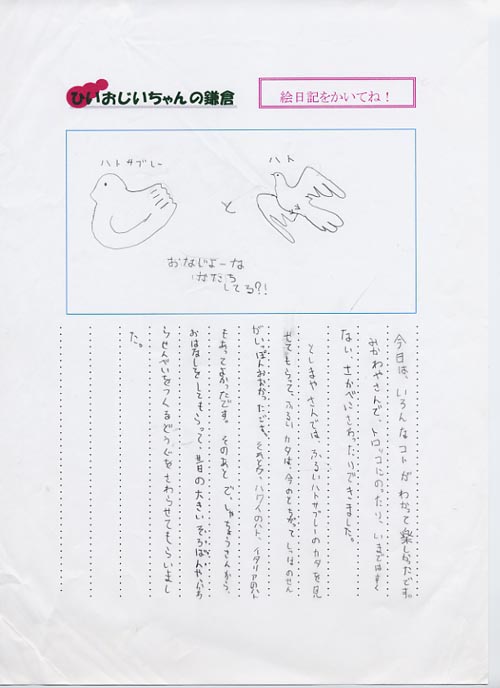 ひいおじいちゃんの鎌倉
絵日記をかいてね!
ハトサブレー
と
ハト
おなじよーな
かたち
してる?!
今日は、いろんなコトがわかって楽しかったです。
みかわやさんで、トロッコにのったり、いまではすく
ない、土かべにさわったりできました。
としまやさんでは、ふるいハトサブレーのカタを見
せてもらって、ふるいカタは、今のとちがって、しっぽのせん
がいっぽんおおかったです。そのとき、ハワイのハト、イタリアのハト
もあってよかったです。そのあとで、しゃちょうさんから、
おはなしをしてもらって、昔の大きいそろばんや、かわ
らせんべいをつくるどうぐをさわらせてもらいまし
た。